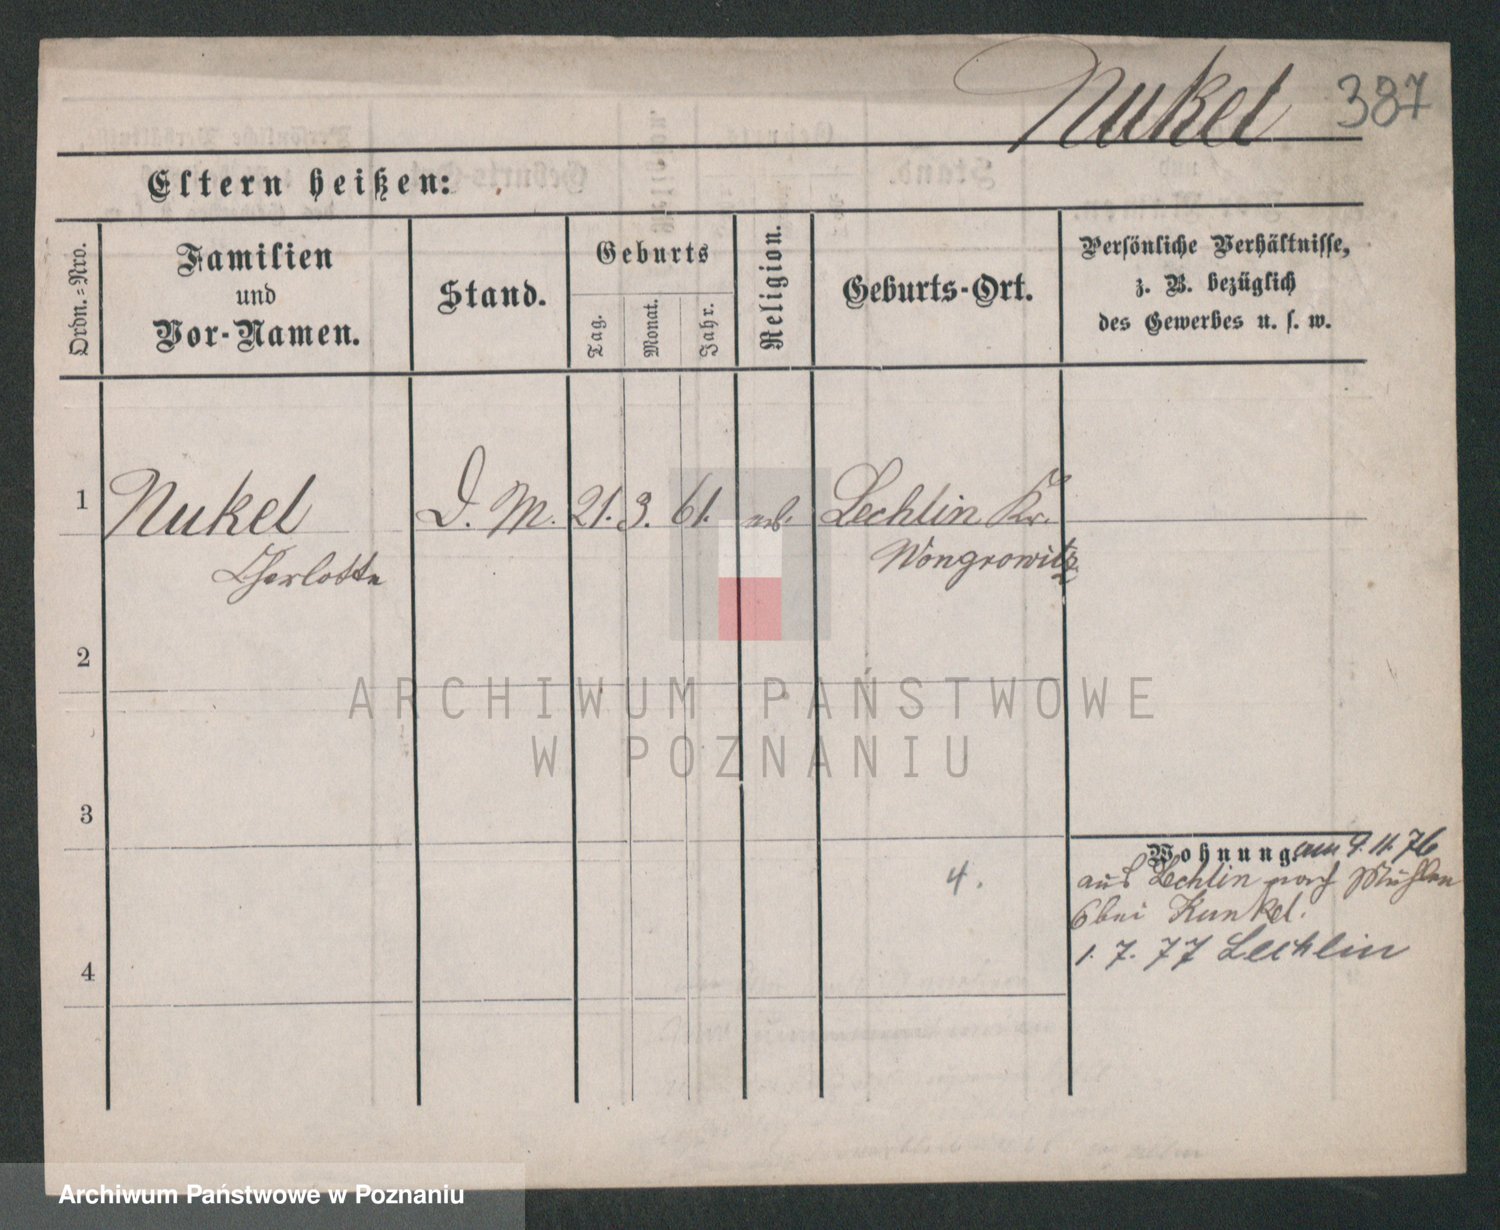 Nukel 387
Eltern heißen:
Ordn.=Nro.
Familien
und
Vor-Namen.
Stand.
Geburts
Tag.
Monat.
Jahr.
Religion.
Geburts-Ort.
Persönliche Verhältnisse,
z. B. bezüglich
des Gewerbes u. s. w.
1 Nukel D. M. 21. 3. 61. Lechlin Kr.
Charlotte Wongrowitz
2
3
4
4.
Wohnung am 9. 11. 76
aus Lechlin nach Mühlen
6 bei Kunkel.
1. 7. 77 Lechlin
ARCHIWUM PAŃSTWOWE
W POZNANIU
Archiwum Państwowe w Poznaniu